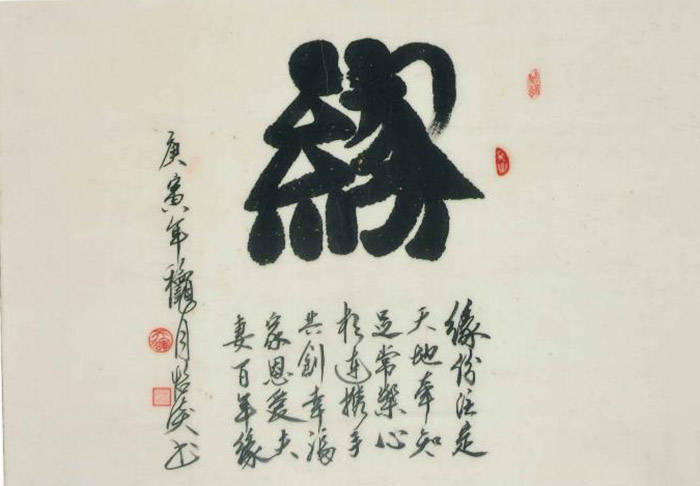 缘
缘份注定
天地牵知
足常樂心
相连携手
共創幸福
家恩爱夫
妻百年缘
庚寅年龝月书